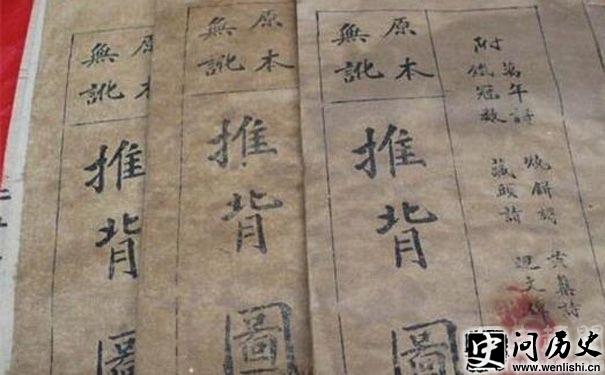 原本
無訛
推背圖
原本
無訛
推背圖
原本
無訛
推背圖
萬年詩
附鐵冠數
燒餅謌
藏頭詩
詩
文
问历史
www.wenlishi.cn